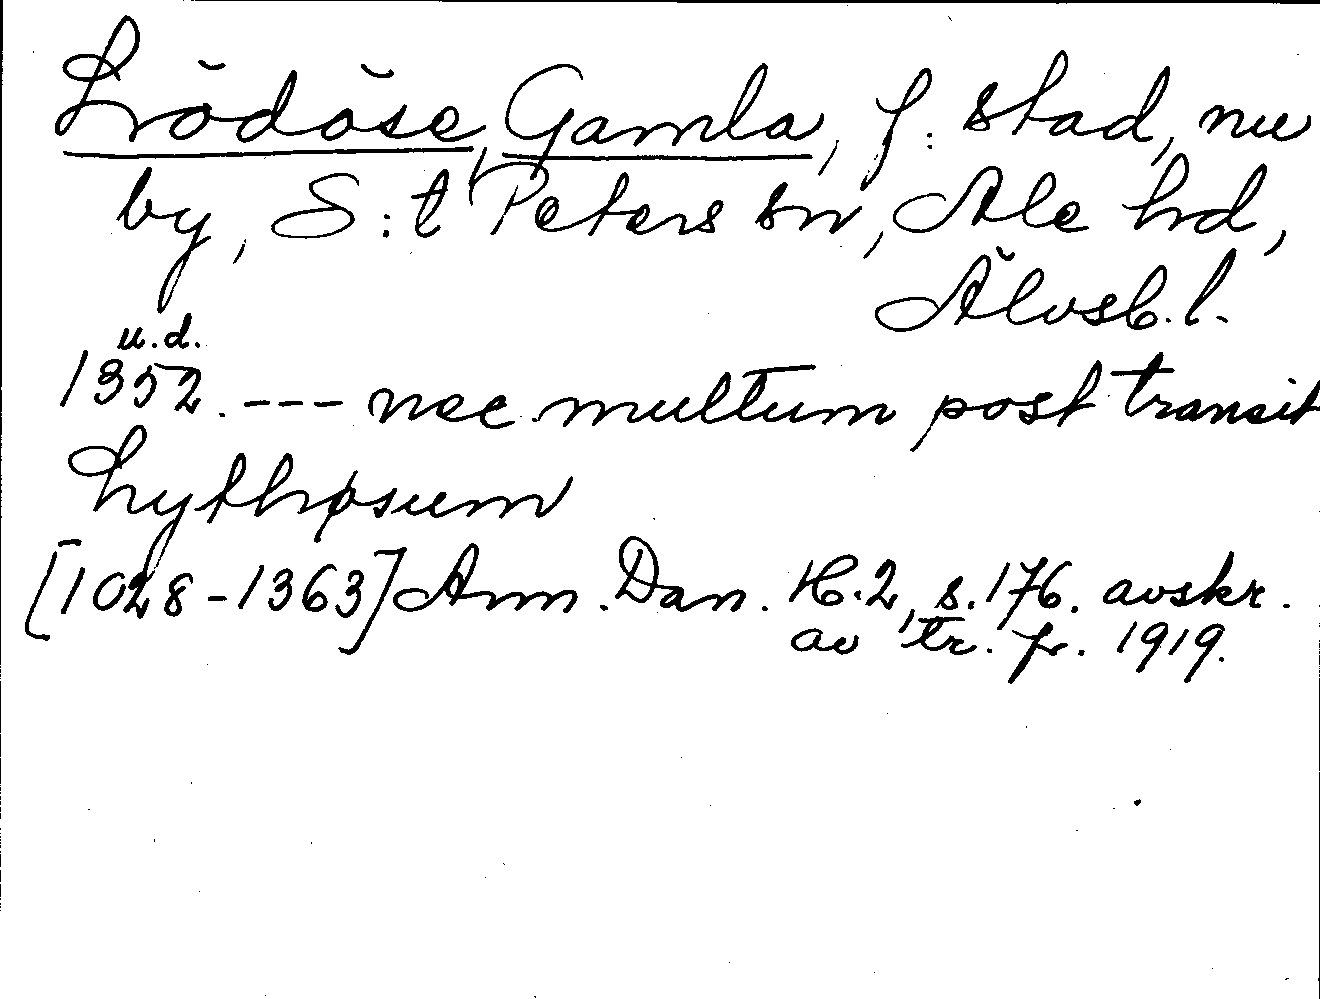 Lödöse, Gamla, f. stad, nu
by, S:t Peters sn, Ale hd,
Älvsb. l.
u.d.
1352. --- nec multum post transit
Lythøsum
[1028-1363] Ann. Dan. H.2, s.176. avskr.
av tr. fr. 1919.